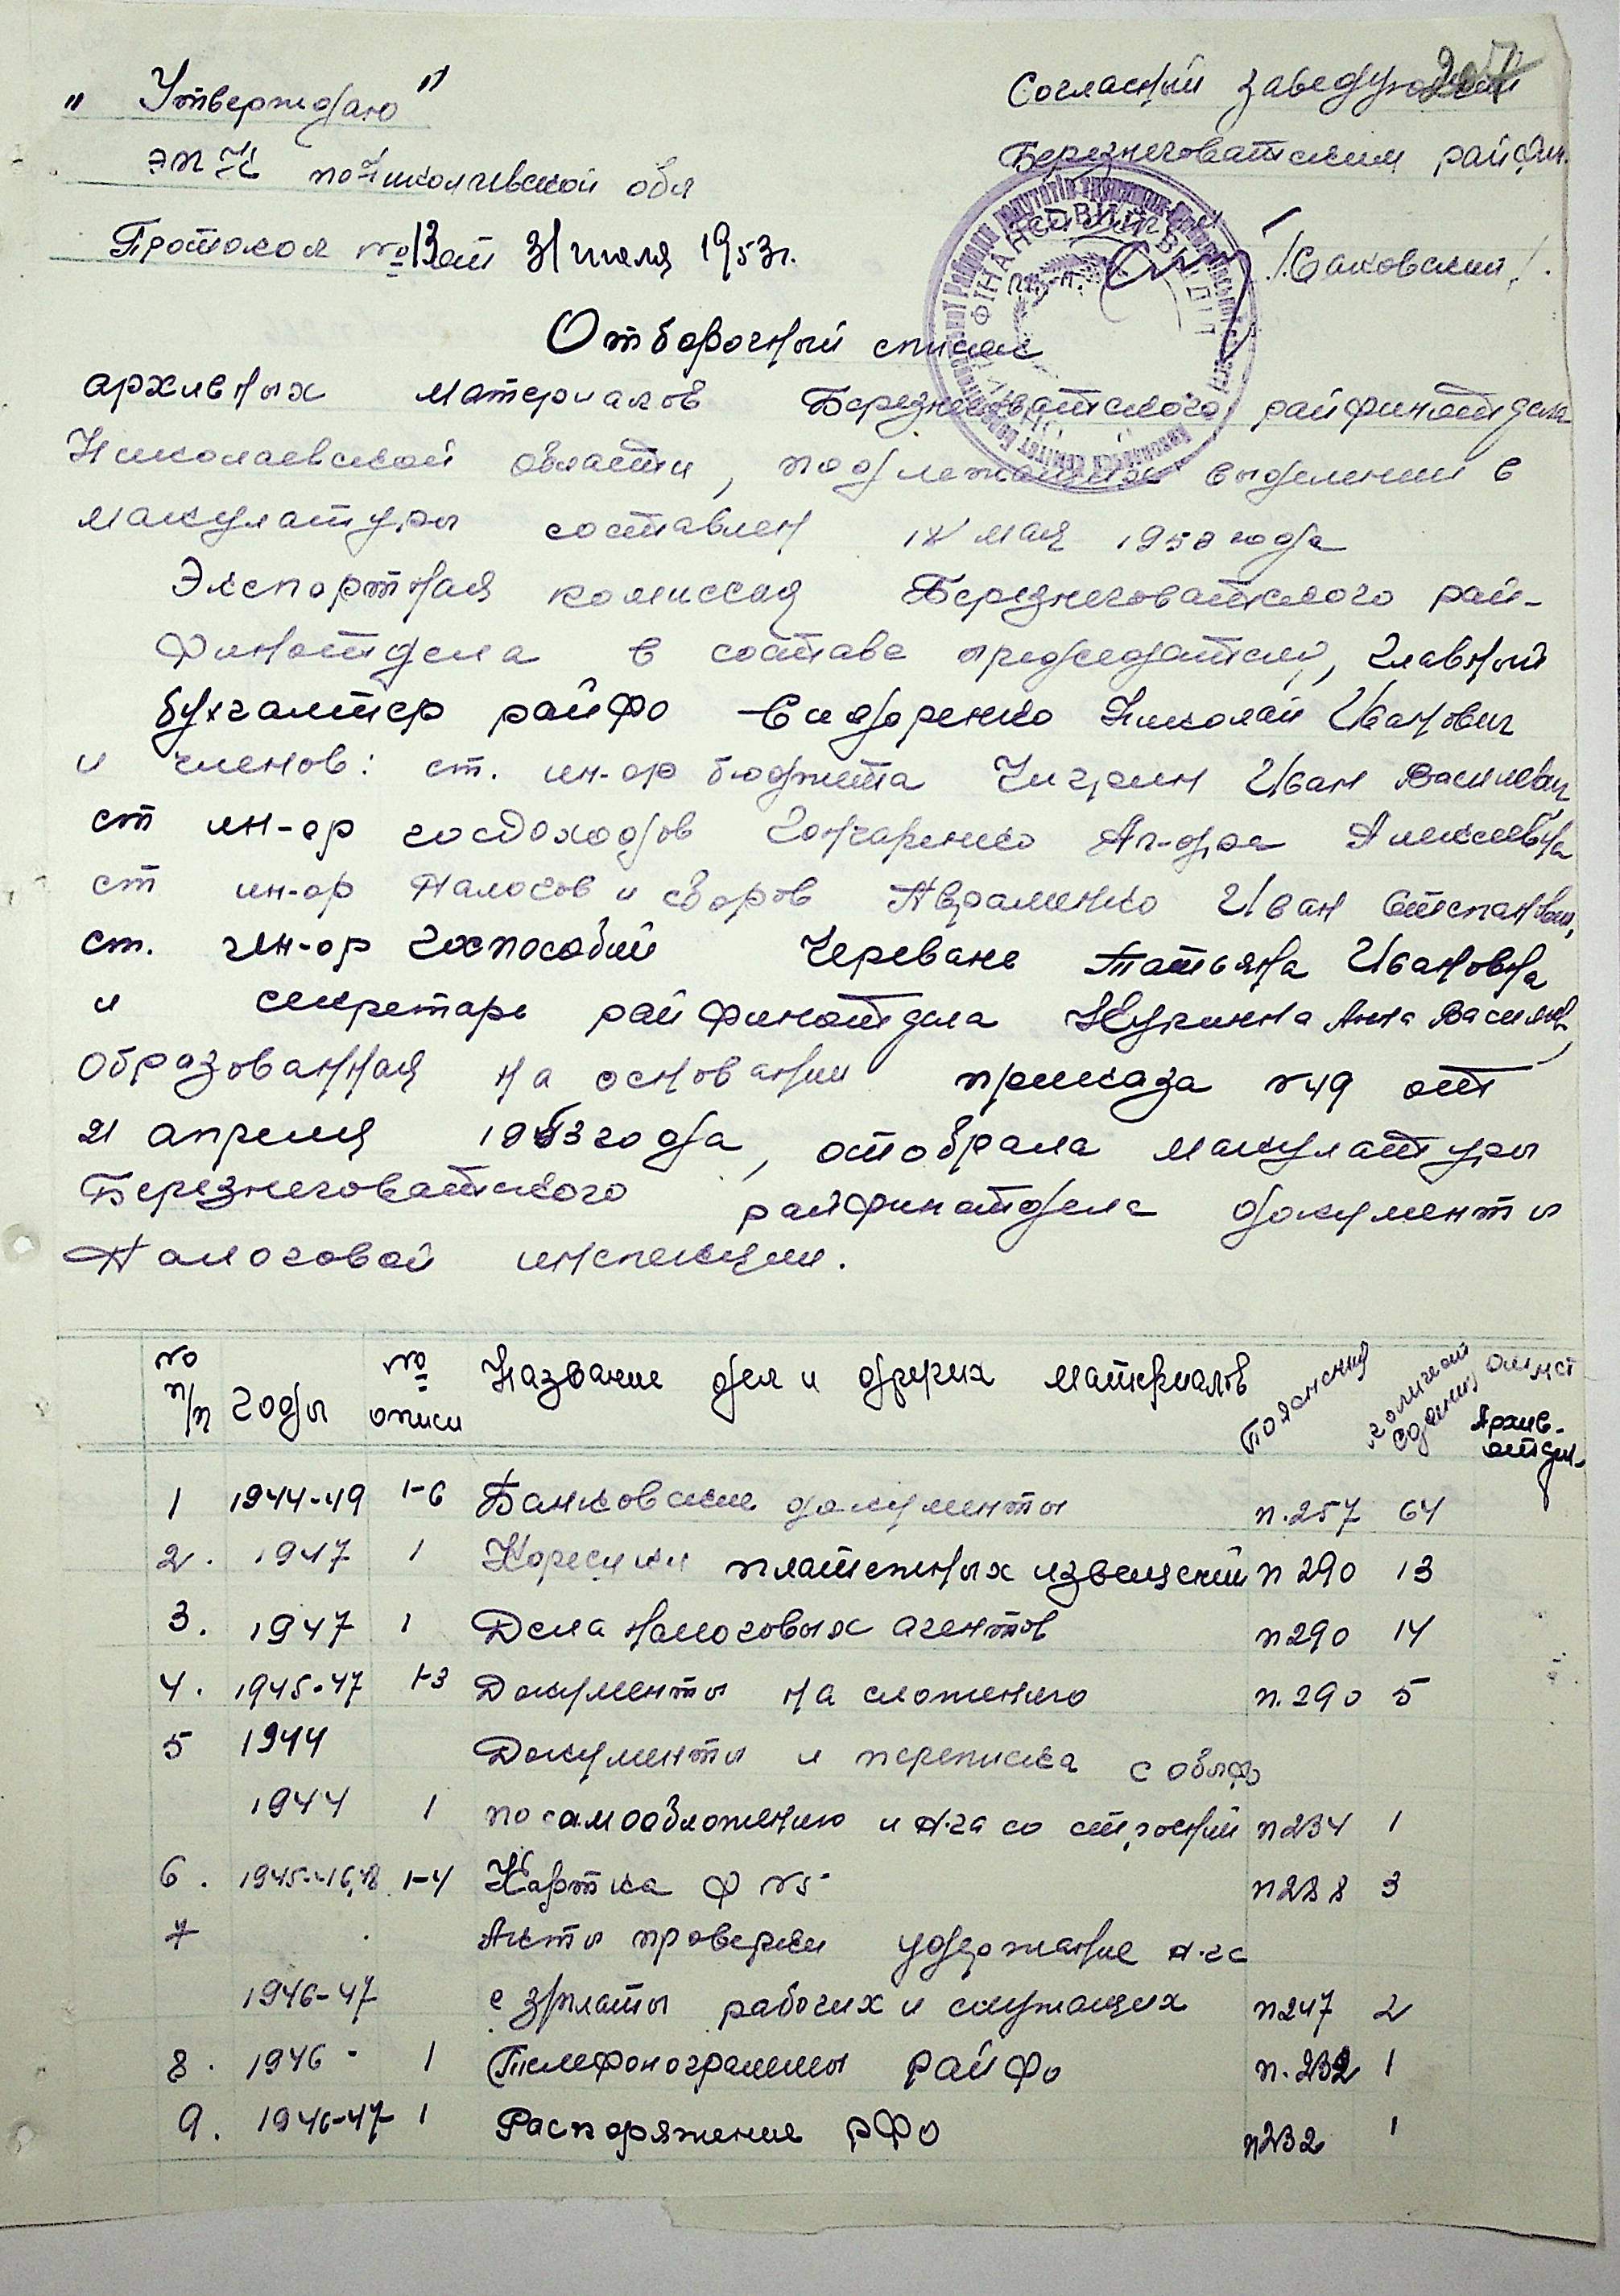 „ Утверждаю "
ЭПК по Николаевской обл
Протокол № 13 от 31 июля 1953г.
Согласный Заведующий
Березнеговатским райфин.
/Саковский/.
Отборочный список
архивных материалов Березнеговатского райфинотдела
Николаевской области, подлежащих выделении в
макулатуры составлен мая 1953 года
Экспортная комиссия Березнеговатского рай-
финотдела в составе председателя, главный
бухгалтер райфо Сидоренко Николай Иванович
и членов: ст. ин-ор бюджета Чигрин Иван Василевич
ст ин-ор госдоходов Гончаренко Ал-дра Алексеевна
ст ин-ор Налогов и сборов Авраменко Иван Степанович,
ст. ин-ор Госпособий Черевань Татьяна Ивановна
и секретарь райфинотдела Анна Василев,
образованная на основании приказа №49 от
21 апреля 1953 года, отобрала макулатуры
Березнеговатского райфинотдела документы
Налоговой инспекции.
№ п/п Годы № описи Название дел и других материалов Пояснения Количест единиц Отмет Архив-отдел.
1 1944-49 1-6 Банковские документы п.257 64
2. 1947 1 Корешки платежных извещений п 290 13
3. 1947 1 Дела налоговых агентов п290 14
4. 1945-47 1-3 Документы на сложению п.290 5
5 1944 Документы и переписка с облфо
1944 1 по самообложению и н-га со строений п234 1
6. 1945-46,48 1-4 Картка ф №5 п288 3
7 Акты проверки удержание н-га
1946-47 с зрплаты рабочих и служащих п247 2
8. 1946 - 1 Телефонограммы райфо п.232 1
9. 1946-47- 1 Распоряжение рФо п232 1